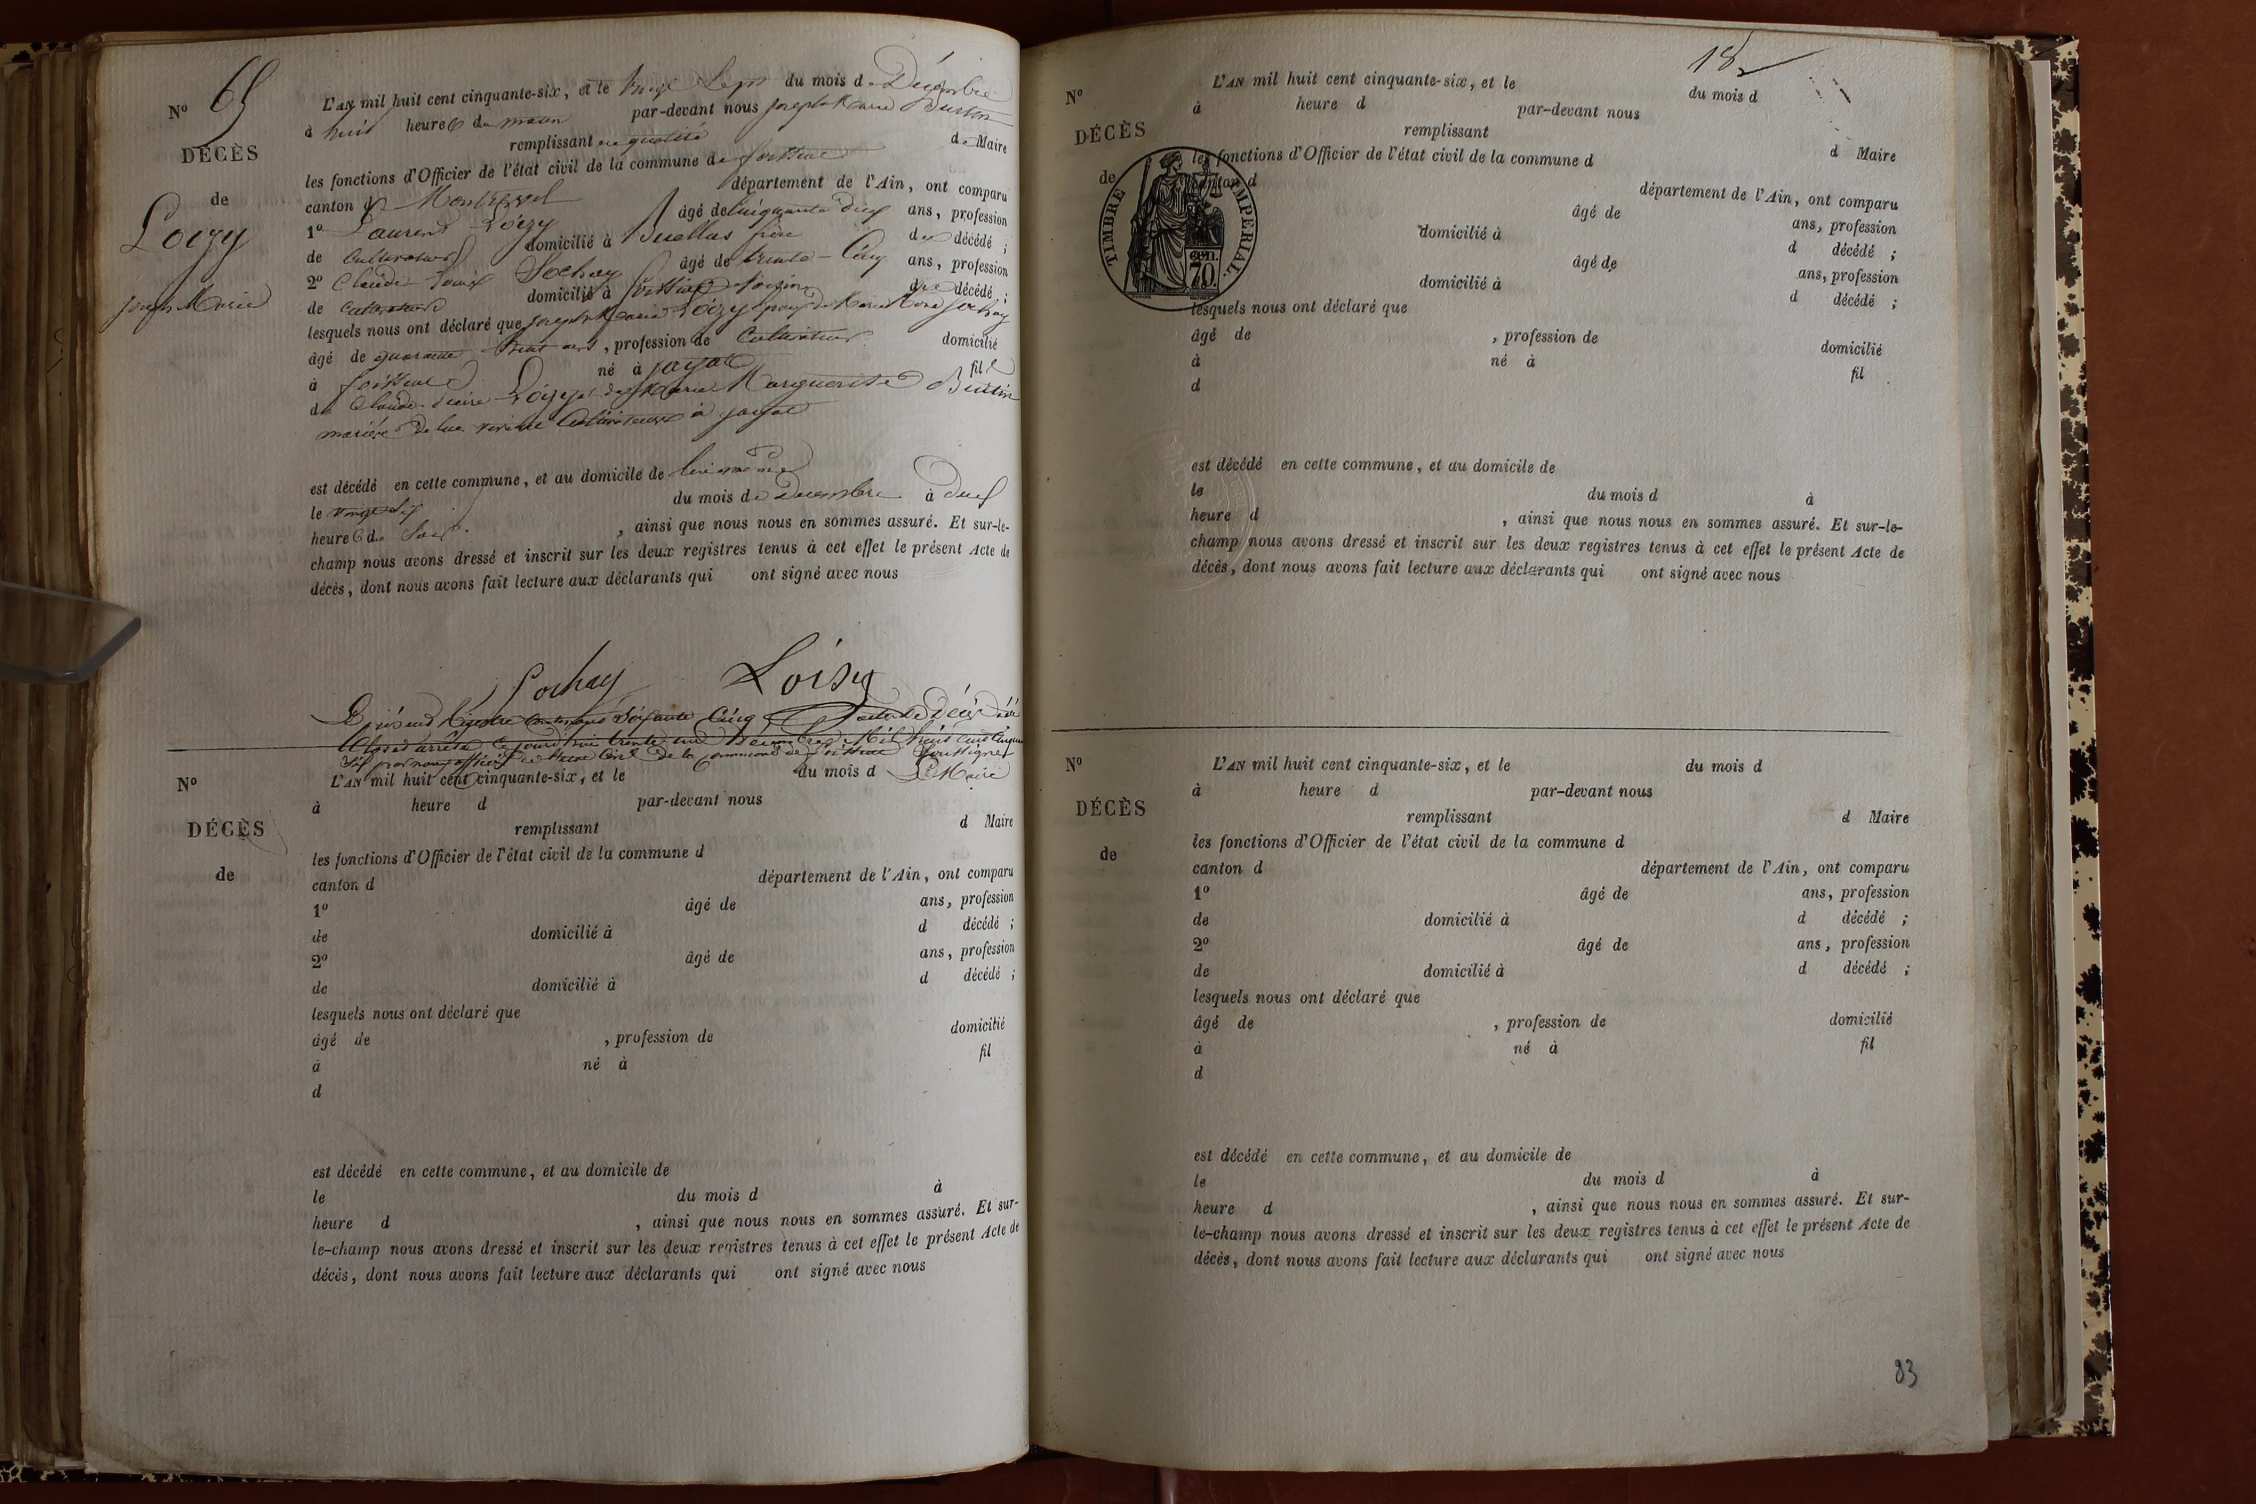 N° 65
DÉCÈS
de
Loizy
Joseph Marie
L'AN mil huit cent cinquante-six, et le vingt Sept du mois de Décembre
à huit heures du matin par-devant nous joseph Marie Buston
remplissant en qualité de Maire
les fonctions d'Officier de l'état civil de la commune de foissiat
canton de Montrevel département de l'Ain, ont comparu
1° Laurent Loizy âgé de Cinquante Dix ans, profession
de Cultivateur domicilié à Buellas frère du décédé ;
2° Claude Louis Sochay âgé de trente-Cinq ans, profession
de Cultivateur domicilié à foissiat voisin du décédé ;
lesquels nous ont déclaré que joseph Marie Loizy époux de Marie Sochay
âgé de quarante huit ans, profession de Cultivateur domicilié
à foissiat né à jayat fils
de Claude Loizy et de Marie Marguerite Bustin
mariés de leur vivant Cultivateurs à jayat
est décédé en cette commune, et au domicile de lui même
le vingt Six du mois de Decembre à deux
heures du Soir, ainsi que nous nous en sommes assuré. Et sur-le-
champ nous avons dressé et inscrit sur les deux registres tenus à cet effet le présent Acte de
décès, dont nous avons fait lecture aux déclarants qui ont signé avec nous
Sochay Loisy
Le présent Registre Contenant Soixante Cinq acte de Décès été
Clos et arrêté Ce jourd'hui trente un Décembre Mil huit Cent Cinquante
Six par nous officier de l'état Civil de la Commune de foissiat Soussigné
Le Maire
N°
DÉCÈS
de
L'AN mil huit cent cinquante-six, et le du mois d
à heure d par-devant nous
remplissant d Maire
les fonctions d'Officier de l'état civil de la commune d
canton d département de l'Ain, ont comparu
1° âgé de ans, profession
de domicilié à d décédé ;
2° âgé de ans, profession
de domicilié à d décédé ;
lesquels nous ont déclaré que
âgé de , profession de domicilié
à né à fil
d
est décédé en cette commune, et au domicile de
le du mois d à
heure d , ainsi que nous nous en sommes assuré. Et sur-
le-champ nous avons dressé et inscrit sur les deux registres tenus à cet effet le présent Acte de
décès, dont nous avons fait lecture aux déclarants qui ont signé avec nous
182
N°
DÉCÈS
de
TIMBRE IMPERIAL.
CEN. 70.
L'AN mil huit cent cinquante-six, et le du mois d
à heure d par-devant nous
remplissant d Maire
les fonctions d'Officier de l'état civil de la commune d
canton d département de l'Ain, ont comparu
âgé de ans, profession
domicilié à d décédé ;
âgé de ans, profession
domicilié à d décédé ;
lesquels nous ont déclaré que
âgé de , profession de domicilié
à né à fil
d
est décédé en cette commune, et au domicile de
le du mois d à
heure d , ainsi que nous nous en sommes assuré. Et sur-le-
champ nous avons dressé et inscrit sur les deux registres tenus à cet effet le présent Acte de
décès, dont nous avons fait lecture aux déclarants qui ont signé avec nous
N°
DÉCÈS
de
L'AN mil huit cent cinquante-six, et le du mois d
à heure d par-devant nous
remplissant d Maire
les fonctions d'Officier de l'état civil de la commune d
canton d département de l'Ain, ont comparu
1° âgé de ans, profession
de domicilié à d décédé ;
2° âgé de ans, profession
de domicilié à d décédé ;
lesquels nous ont déclaré que
âgé de , profession de domicilié
à né à fil
d
est décédé en cette commune, et au domicile de
le du mois d à
heure d , ainsi que nous nous en sommes assuré. Et sur-
le-champ nous avons dressé et inscrit sur les deux registres tenus à cet effet le présent Acte de
décès, dont nous avons fait lecture aux déclarants qui ont signé avec nous
83